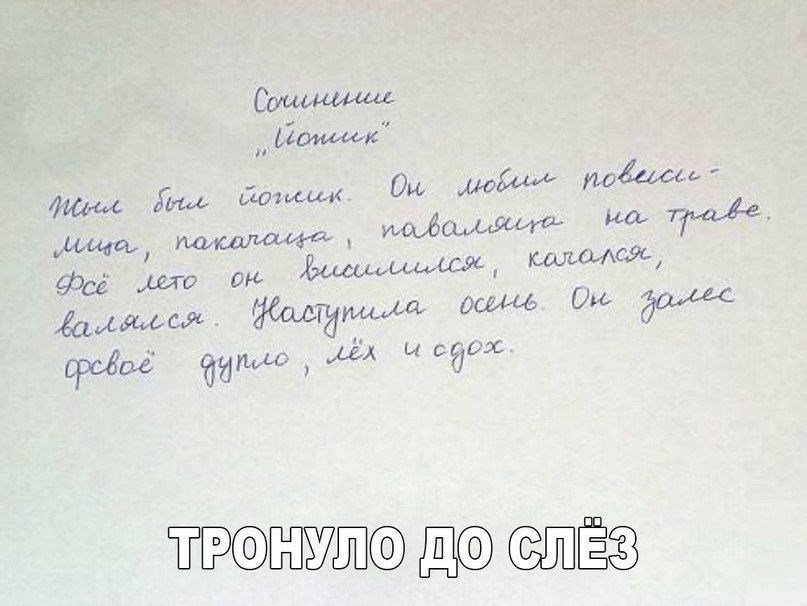 Сочинение
„Йожик"
Жыл был йожик. Он любил повиси-
лица, пакачаца, паваляца на траве.
Фсё лето он висилился, качался,
валялся. Наступила осень. Он залес
фсвоё дупло, лёх и сдох.
ТРОНУЛО ДО СЛЁЗ